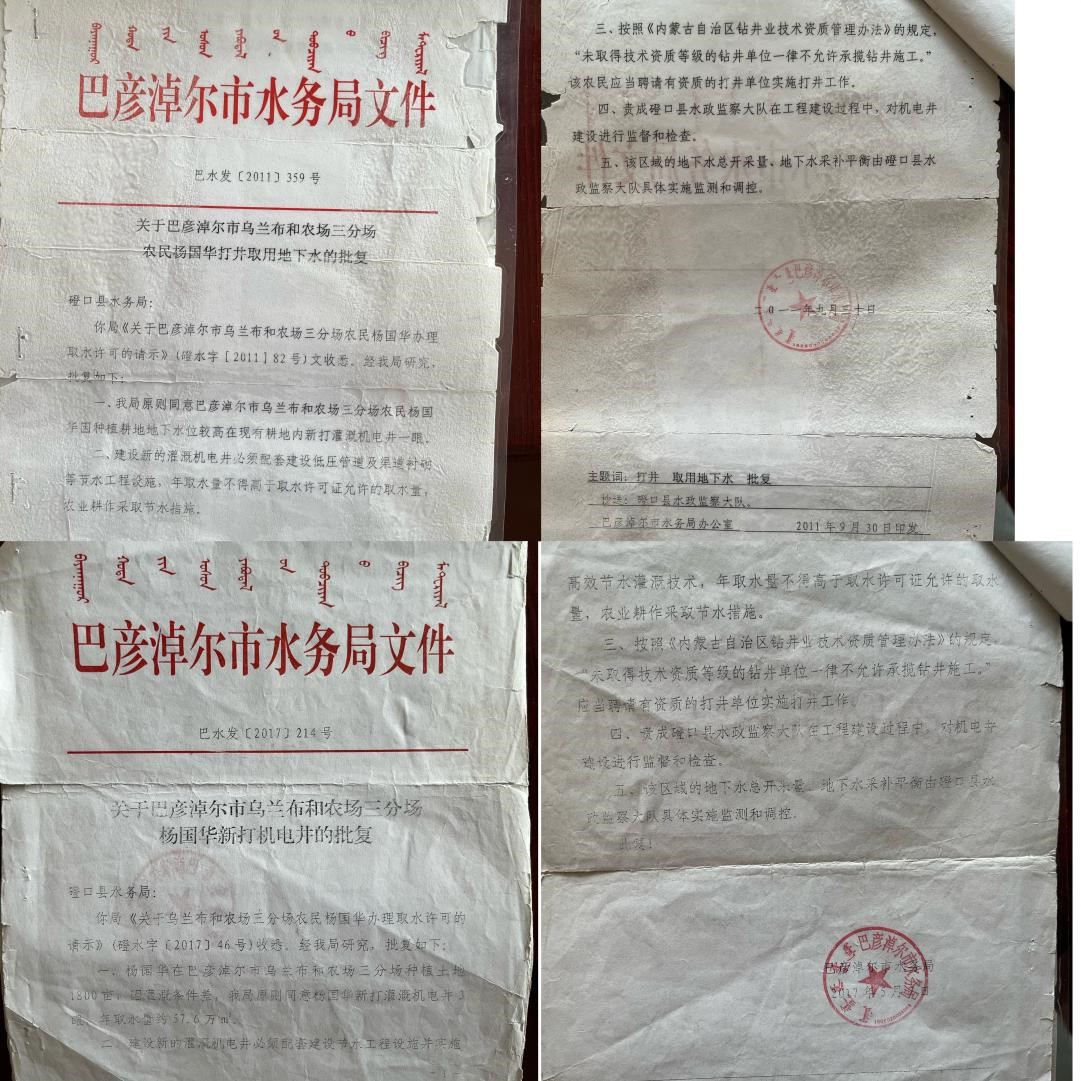 巴彦淖尔市水务局文件
巴水发〔2011〕359号
关于巴彦淖尔市乌兰布和农场三分场
农民杨国华打井取用地下水的批复
磴口县水务局：
你局《关于巴彦淖尔市乌兰布和农场三分场农民杨国华办理
取水许可的请示》（磴水字〔2011〕82号）文收悉。经我局研究，
批复如下：
一、我局原则同意巴彦淖尔市乌兰布和农场三分场农民杨国
华因种植耕地地下水位较高在现有耕地内新打灌溉机电井一眼。
二、建设新的灌溉机电井必须配套建设低压管道及渠道衬砌
等节水工程设施，年取水量不得高于取水许可证允许的取水量，
农业耕作采取节水措施。
三、按照《内蒙古自治区钻井业技术资质管理办法》的规定，
“未取得技术资质等级的钻井单位一律不允许承揽钻井施工。”
该农民应当聘请有资质的打井单位实施打井工作。
四、责成磴口县水政监察大队在工程建设过程中，对机电井
建设进行监督和检查。
五、该区域的地下水总开采量、地下水采补平衡由磴口县水
政监察大队具体实施监测和调控。
二〇一一年九月三十日
主题词：打井 取用地下水 批复
抄送：磴口县水政监察大队。
巴彦淖尔市水务局办公室 2011年9月30日印发
巴彦淖尔市水务局文件
巴水发〔2017〕214号
关于巴彦淖尔市乌兰布和农场三分场
杨国华新打机电井的批复
磴口县水务局：
你局《关于乌兰布和农场三分场农民杨国华办理取水许可的
请示》（磴水字〔2017〕46号）收悉。经我局研究，批复如下：
一、杨国华在巴彦淖尔市乌兰布和农场三分场种植土地
1800亩，因灌溉条件差，我局原则同意杨国华新打灌溉机电井3
眼，年取水量约57.6万m³。
二、建设新的灌溉机电井必须配套建设节水工程设施并实施
高效节水灌溉技术，年取水量不得高于取水许可证允许的取水
量，农业耕作采取节水措施。
三、按照《内蒙古自治区钻井业技术资质管理办法》的规定，
“未取得技术资质等级的钻井单位一律不允许承揽钻井施工。”
应当聘请有资质的打井单位实施打井工作。
四、责成磴口县水政监察大队在工程建设过程中，对机电井
建设进行监督和检查。
五、该区域的地下水总开采量、地下水采补平衡由磴口县水
政监察大队具体实施监测和调控。
此复！
巴彦淖尔市水务局
2017年5月 日